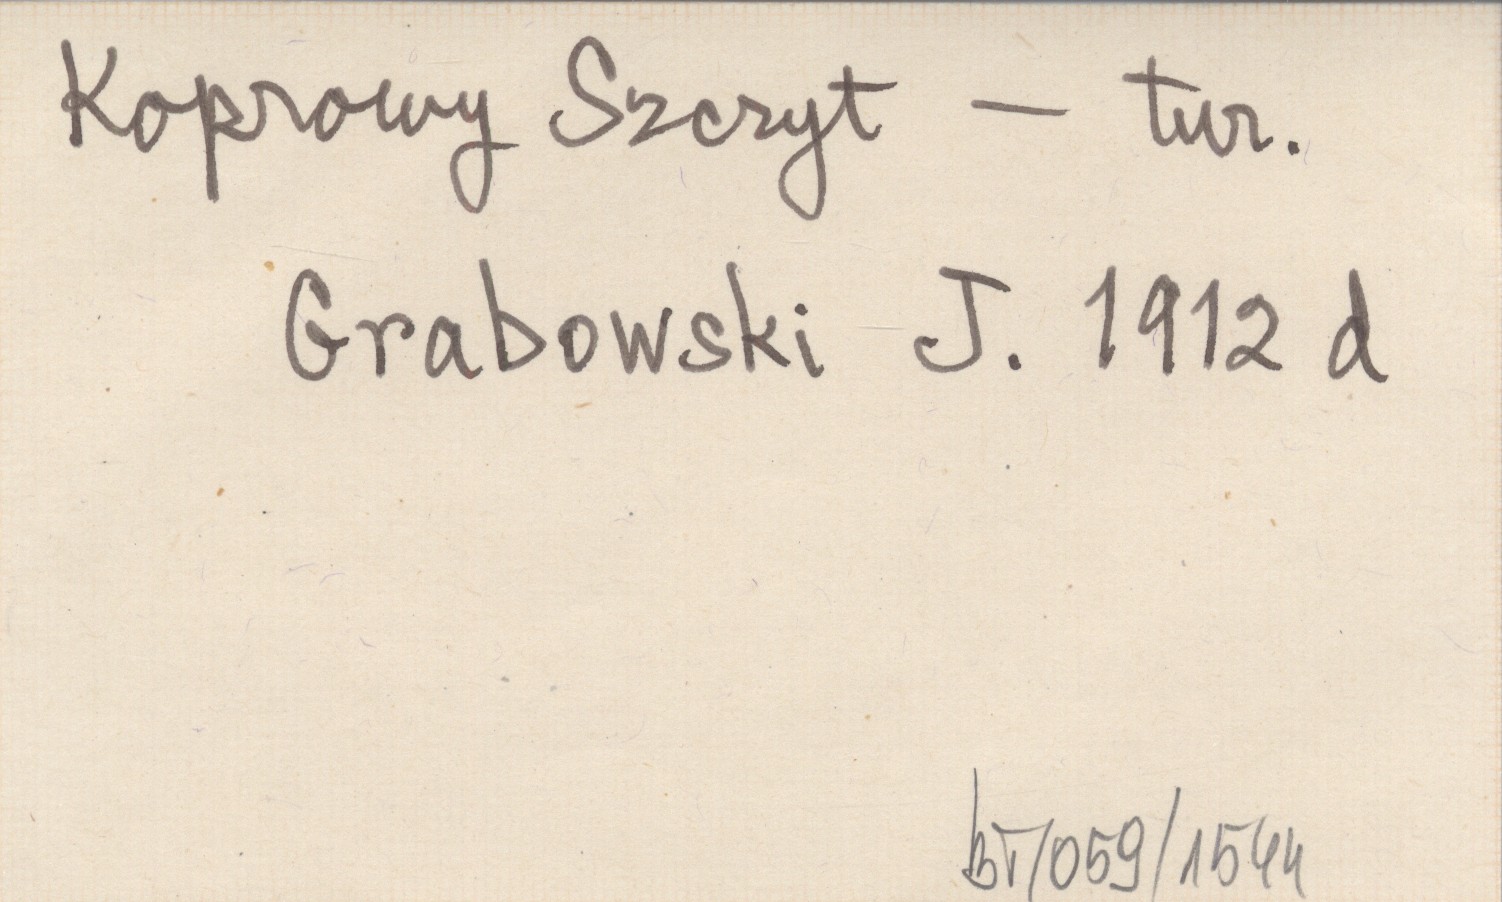 Koprowy Szczyt – tur.
Grabowski J. 1912 d
BT/059/1544